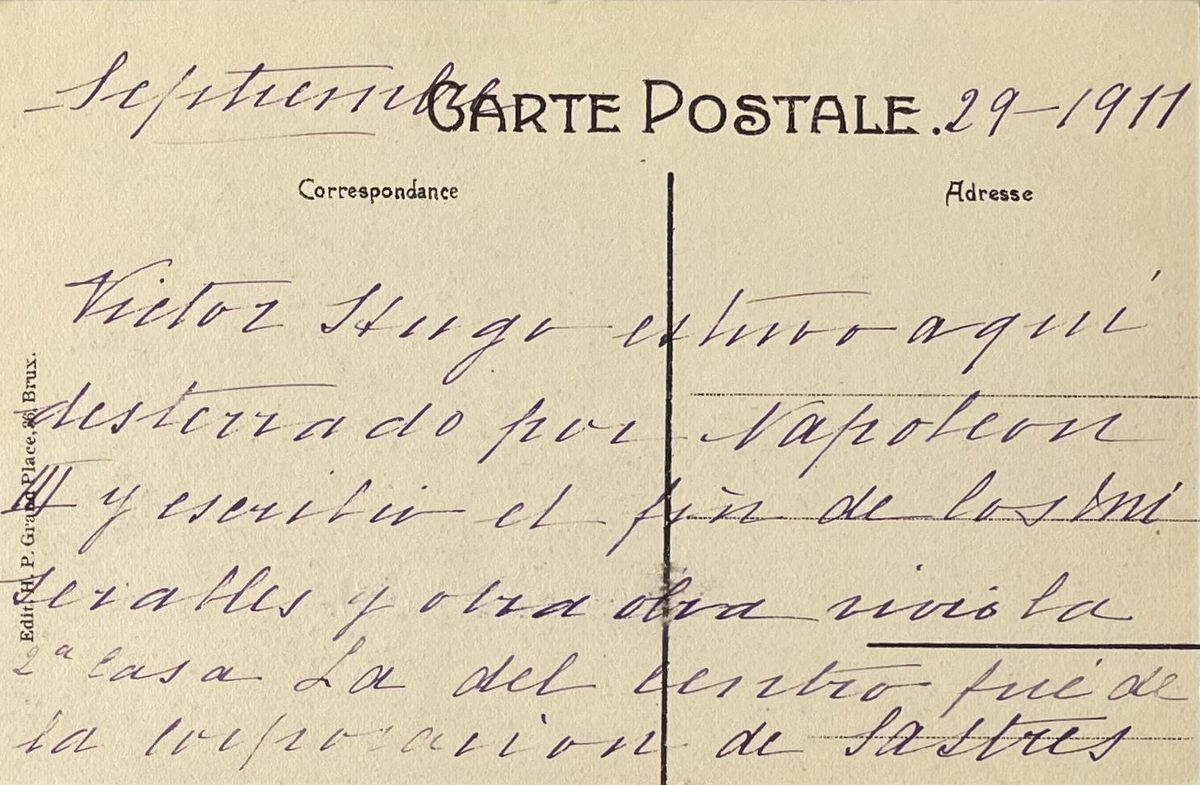 Septiembre 29-1911
CARTE POSTALE.
Correspondance
Adresse
Victor Hugo estuvo aqui
desterrado por Napoleon
III y escribio el fin de los Mi
serables y otra obra vivio la
2ª casa La del centro fué de
la corporacion de Sastres
Edit. H. P. Grand Place, 26, Brux.